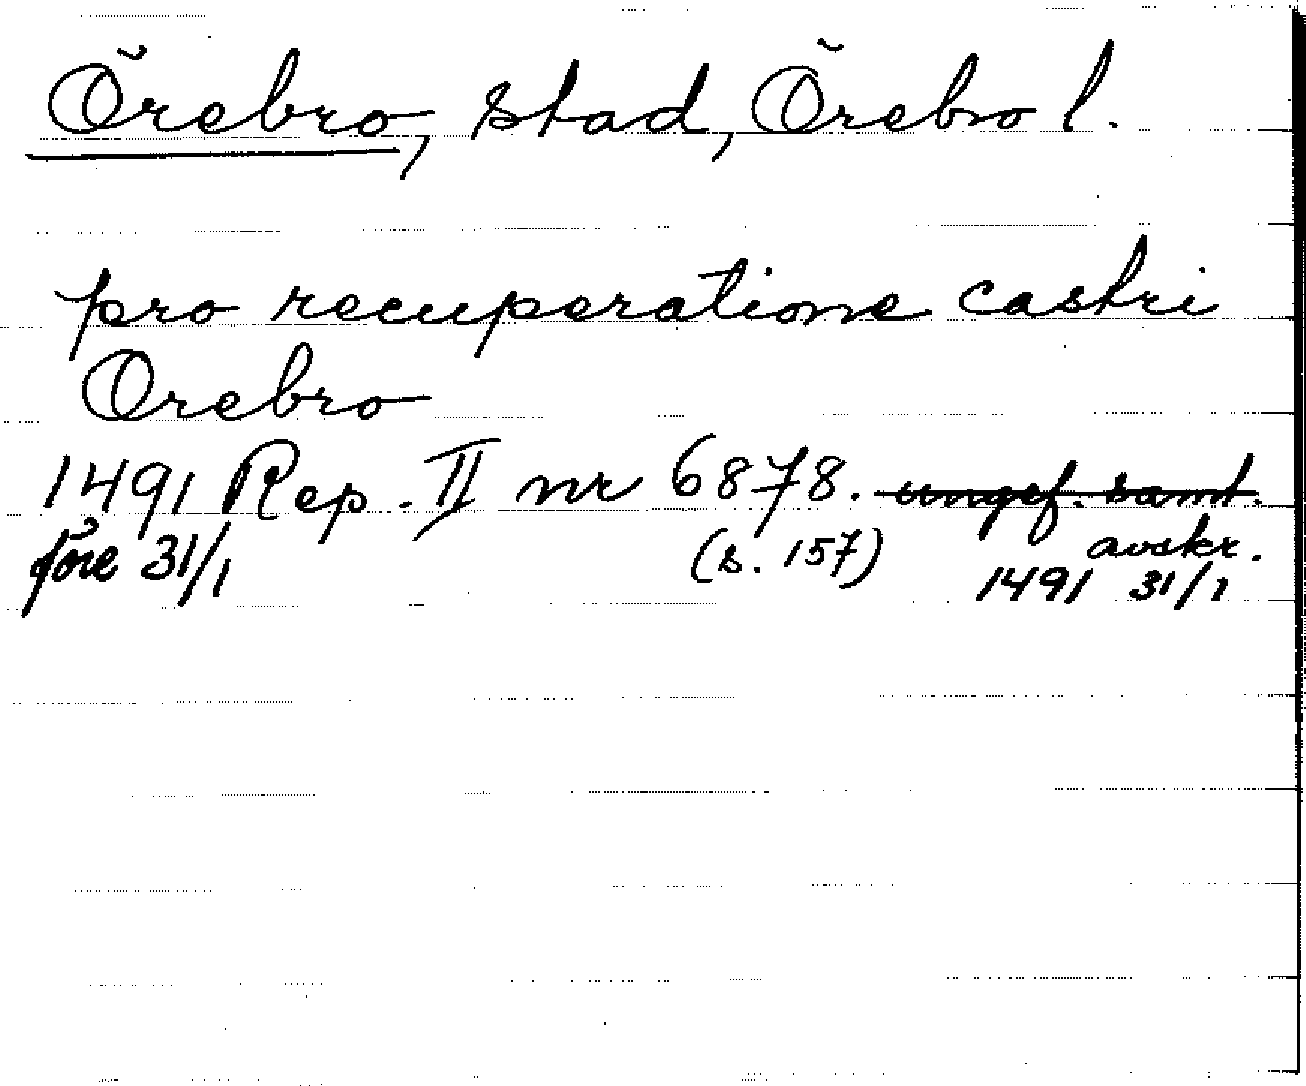 Örebro, stad, Örebro l.
pro recuperatione castri
Orebro
1491 Rep. II nr 6878. ungef. samt.
före 31/1 (s. 157) avskr.
1491 31/1